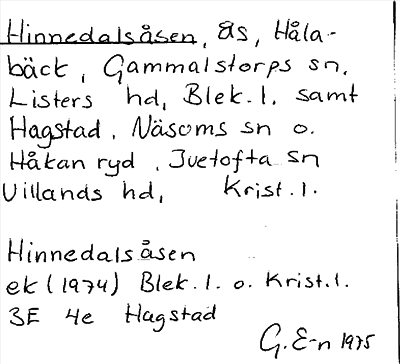 Hinnedalsåsen, ås, Håla-
bäck, Gammalstorps sn,
Listers hd, Blek. l. samt
Hagstad, Näsums sn o.
Håkanryd, Ivetofta sn
Villands hd, Krist. l.
Hinnedalsåsen
ek (1974) Blek. l. o. Krist. l.
3E 4e Hagstad
G. E-n 1975